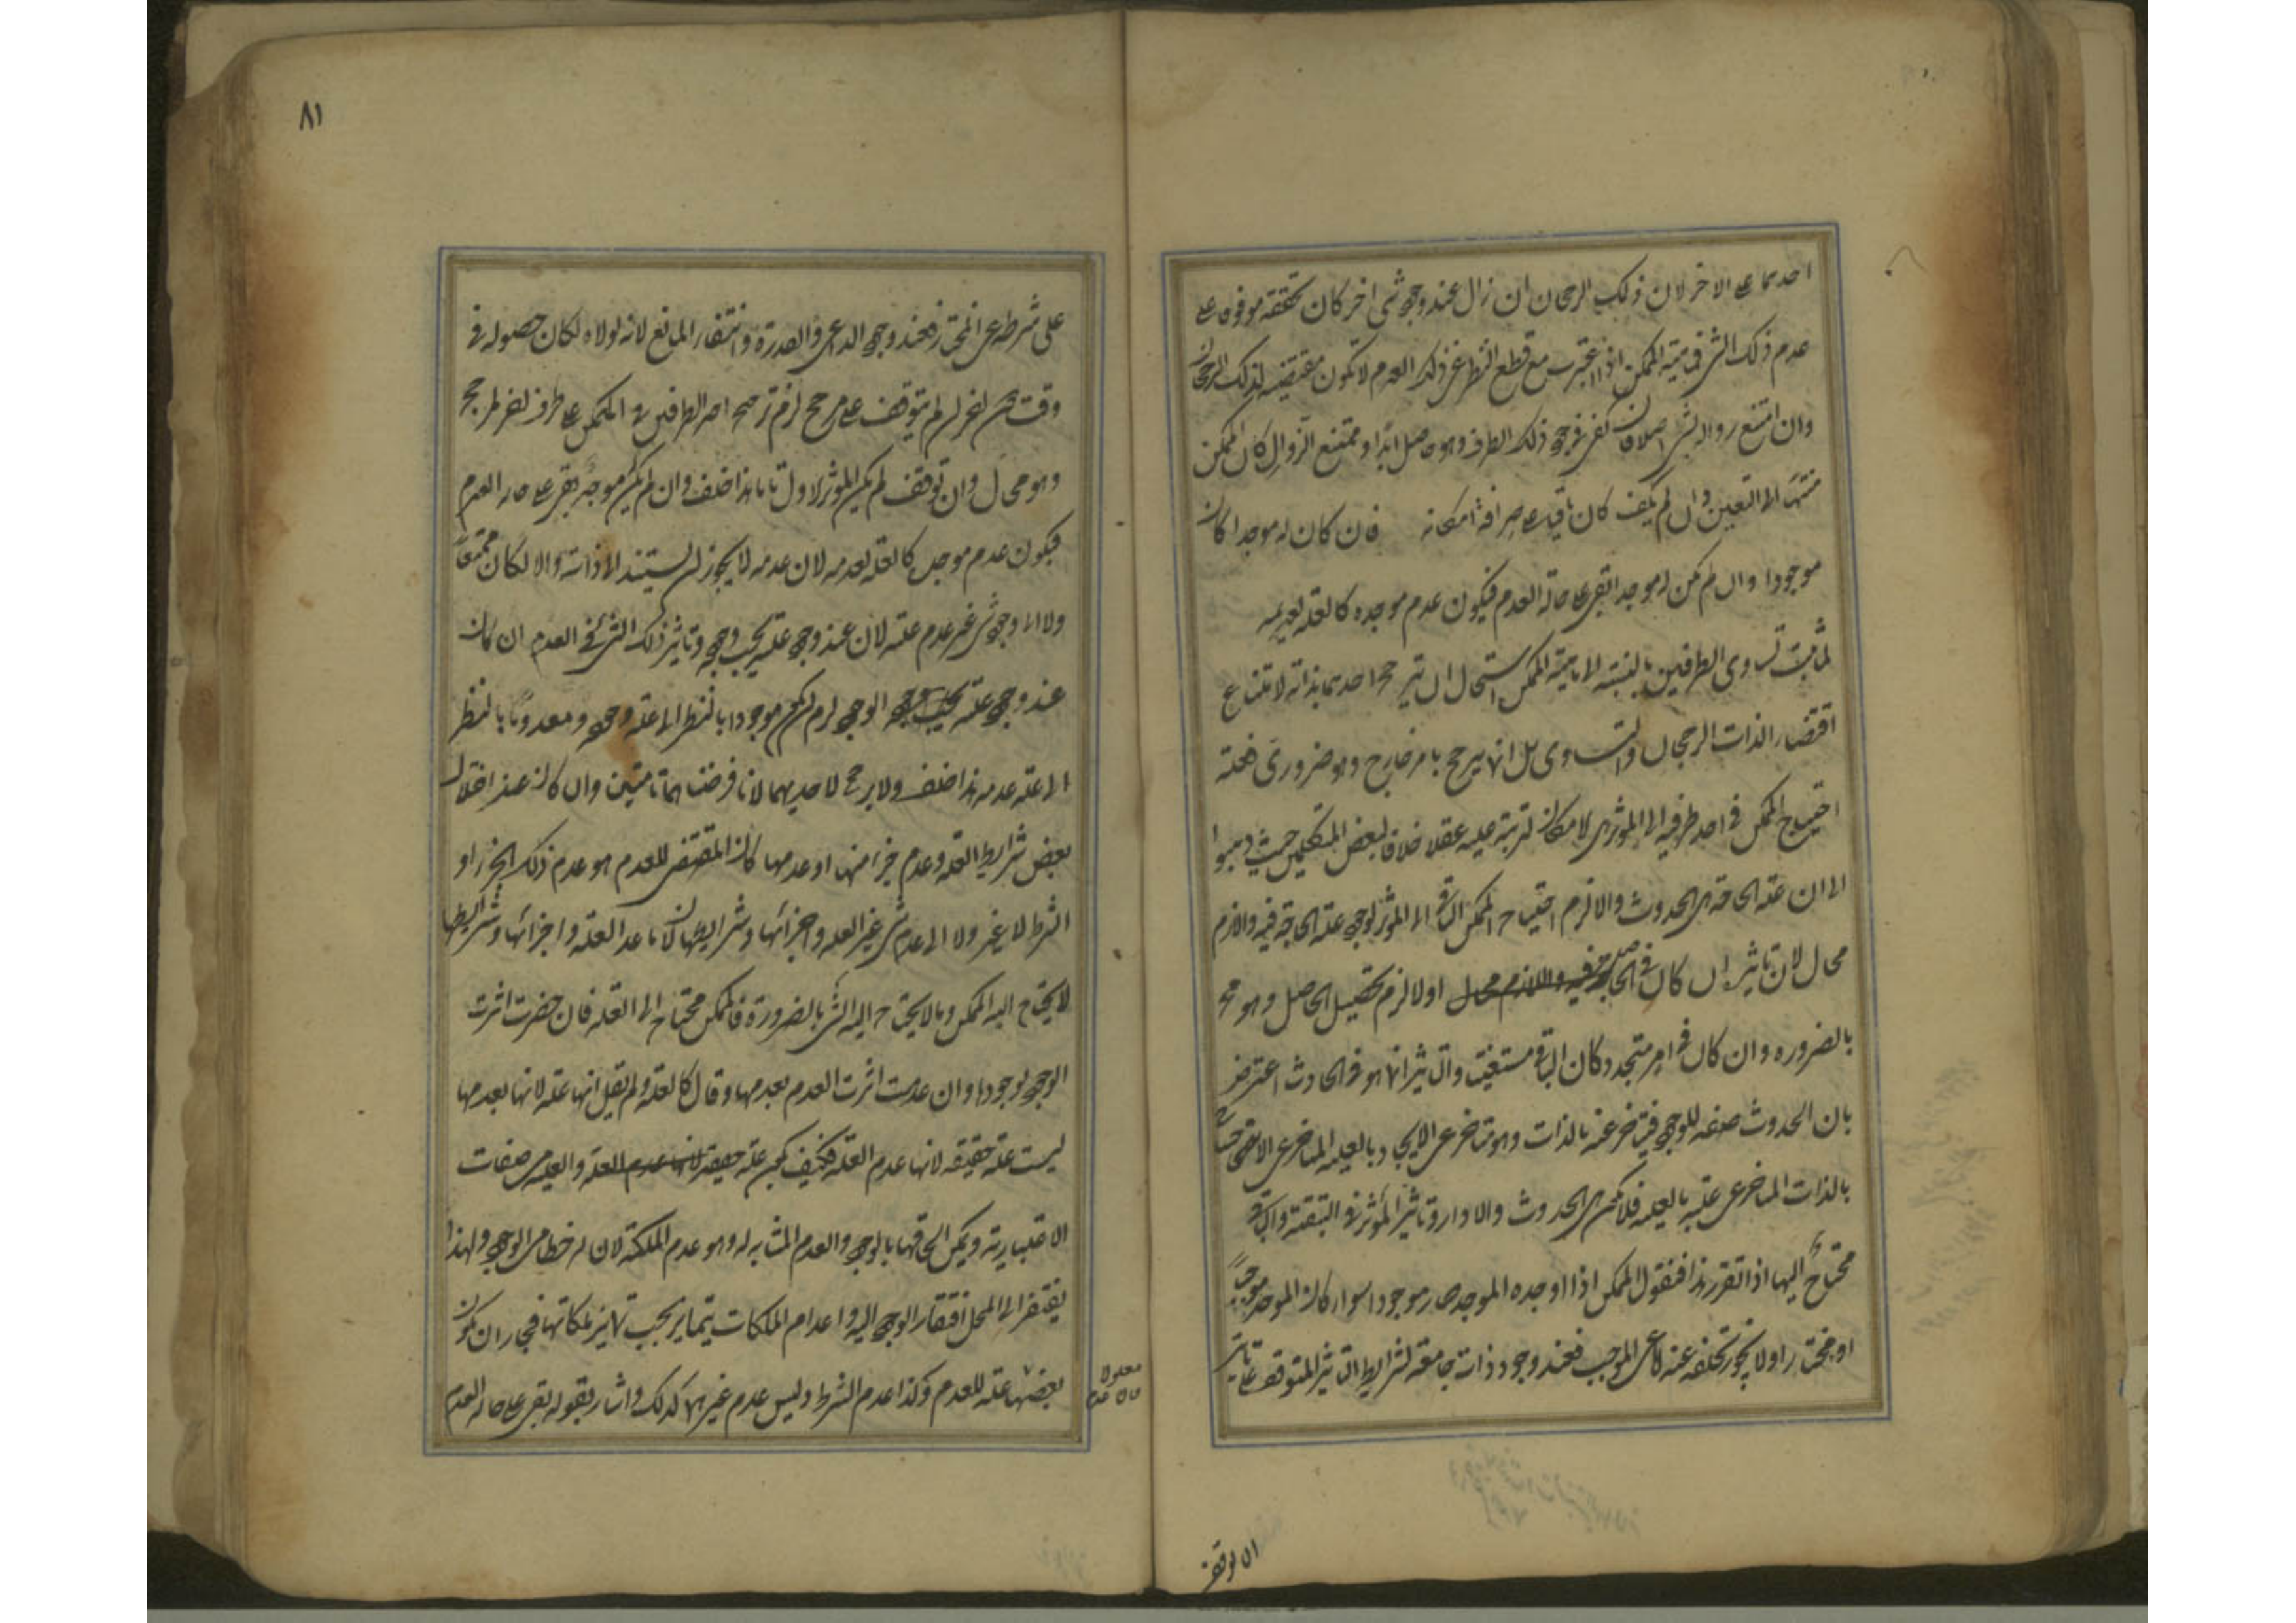 احدهما على الاخر لان ذلك الرجحان ان زال عند وجود شئ اخر كان تحققه موقوفا على
عدم ذلك الشئ فماهية الممكن اذا اعتبرت مع قطع النظر عن ذلك العدم لا تكون مقتضية لذلك الرجحان
وان امتنع زواله بشئ اصلا فان كفى في وجود ذلك الطرف وهو حاصل ابدا وممتنع الزوال كان الممكن
منتهيا الى التعين وان لم يكف كان باقيا على صرافة امكانه فان كان له موجد كان
موجودا وان لم يكن له موجد ابقى على حالة العدم فيكون عدم موجده كالعلة لعدمه
لما ثبت تساوى الطرفين بالنسبة الى ماهية الممكن استحال ان يترجح احدهما بذاته لامتناع
اقتضاء الذات الرجحان والتساوى بل انما يترجح بامر خارج وهو ضرورى فعلة
احتياج الممكن في احد طرفيه الى المؤثر هى الامكان لترتبه عليه عقلا خلافا لبعض المتكلمين حيث ذهبوا
الى ان علة الحاجة هى الحدوث والا لزم احتياج الممكن الباقى الى المؤثر لوجود علة الحاجة فيه واللازم
محال لان تاثيره ان كان في الحاصل اولا لزم تحصيل الحاصل وهو مح
بالضرورة وان كان في امر متجدد كان الباقى مستغنيا والتاثير انما هو في الحادث اعترض
بان الحدوث صفة للوجود فيتاخر عنه بالذات وهو متاخر عن الايجاد بالعلية المتاخر عن الاحتياج
بالذات المتاخر عن علته بالعلية فلا تكن هى الحدوث والا دار وتاثير المؤثر في التبقية والباقى
محتاج اليها اذا تقرر هذا فنقول الممكن اذا اوجده الموجد صار موجودا سواء كان الموجد موجبا
او مختارا ولا يجوز تخلفه عنه اما عن الموجب فعند وجود ذات جامعة لشرايط التاثير المتوقف عليها تاثير
ان توقف
٨١
على شرط عن المختار فعند وجود الداعى والقدرة وانتفاء المانع لانه لولاه لكان حصوله في
وقت دون اخر ان لم يتوقف على مرجح لزم ترجح احد الطرفين في الممكن على طرف اخر لا لمرجح
وهو محال وان توقف لم يكن المؤثر الاول تاما هذا خلف وان لم يكن موجد بقى على حالة العدم
فيكون عدم موجده كالعلة لعدمه لان عدمه لا يجوز ان يستند الى ذاته والا لكان ممتنعا
ولا الى وجود شئ غير عدم علته لان عند وجود علته يجب وجوده وتاثير ذلك الشئ في العدم ان كان
عند وجود علته الوجود لزم ان يكون موجودا بالنظر الى علة وجوده ومعدوما بالنظر
الى علة عدمه هذا خلف ولا يرجح لاحديهما لانا فرضناهما تامتين وان كان عند اختلال
بعض شرايط العلة وعدم جزء منها او عدمها كان المقتضى للعدم هو عدم ذلك الجزء او
الشرط لا غير ولا الى عدم شئ غير العلة واجزائها وشرايطها لان ما عدا العلة واجزائها وشرايطها
لا يحتاج اليه الممكن وما لا يحتاج اليه الشئ بالضرورة فالممكن محتاج الى العلة فان حضرت اثرت
الوجود لوجودها وان عدمت اثرت العدم بعدمها وقال كالعلة ولم يقل انها علة لانها بعدمها
ليست علة حقيقة لانها عدم العلة فكيف يكون علة حقيقة والعلية من صفات
الاعتبارية ويمكن الحاقها بالوجود والعدم المشابه له وهو عدم الملكة لان له حظا من الوجود ولهذا
يفتقر الى المحل افتقار الوجود اليه واعدام الملكات يتمايز بحسب تمايز ملكاتها فجاز ان يكون
بعضها علة للعدم وكذا عدم الشرط وليس عدم غيرهما كذلك واشار بقوله بقى على حالة العدم
معلولا